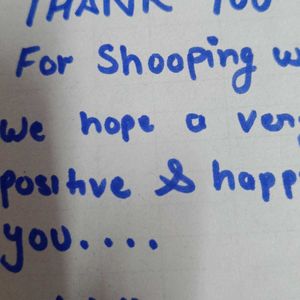 THANK YOU
For Shooping w
We hope a very
positive & happ
you....